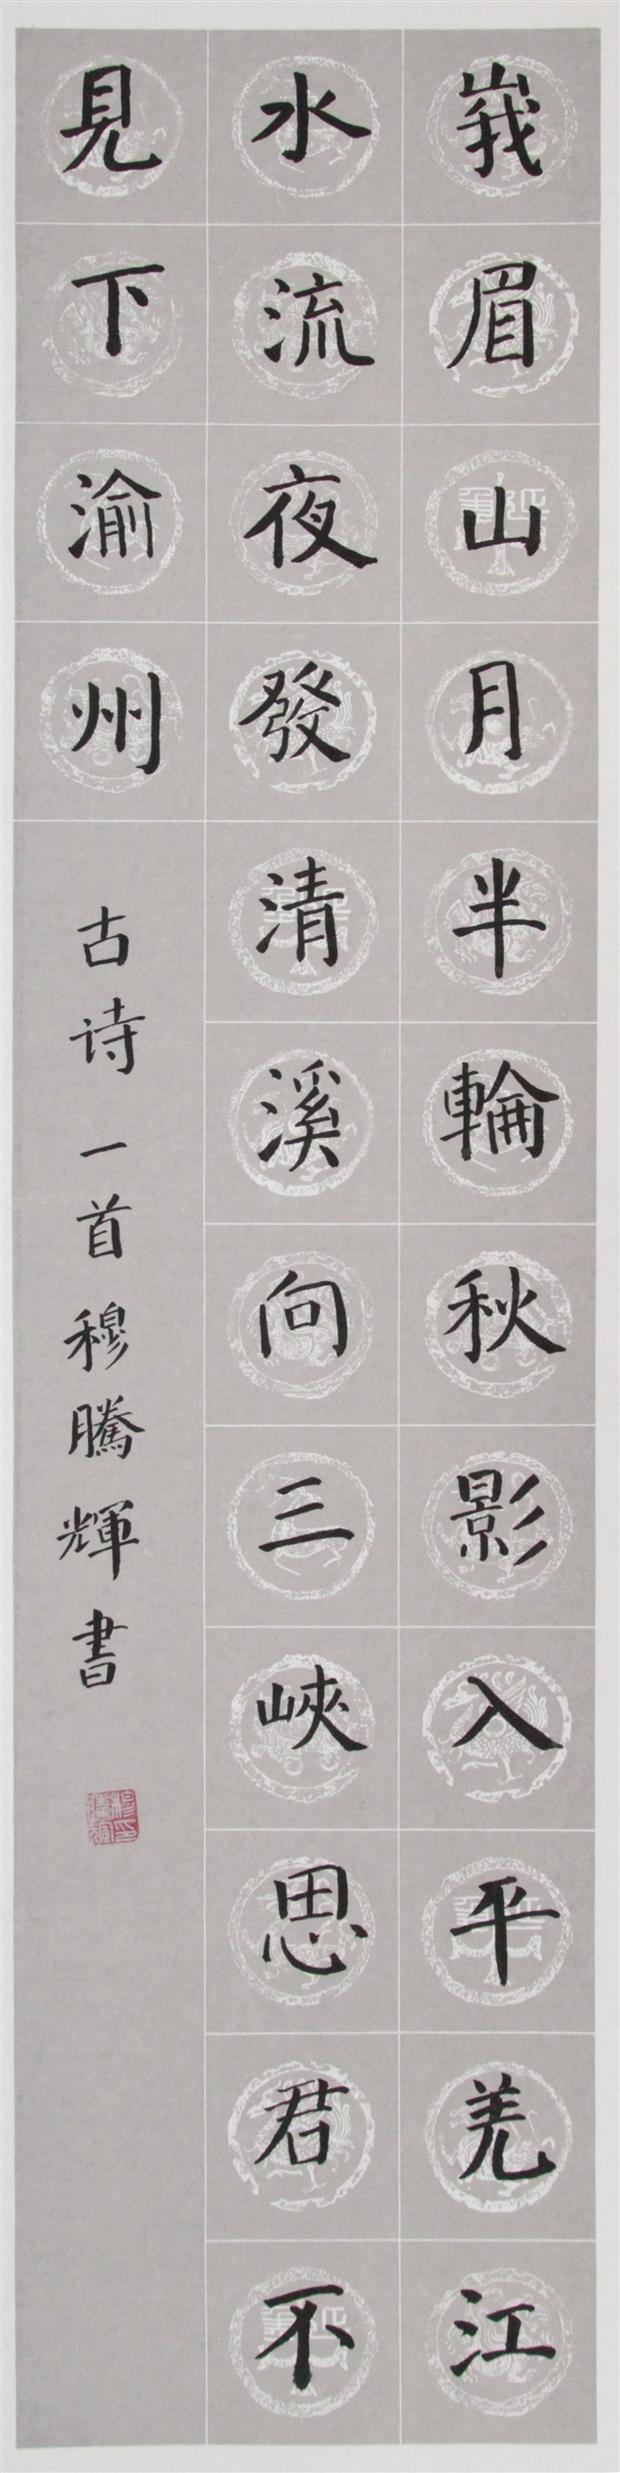 峩眉山月半輪秋影入平羌江
水流夜發清溪向三峽思君不
見下渝州
古诗一首穆騰輝書